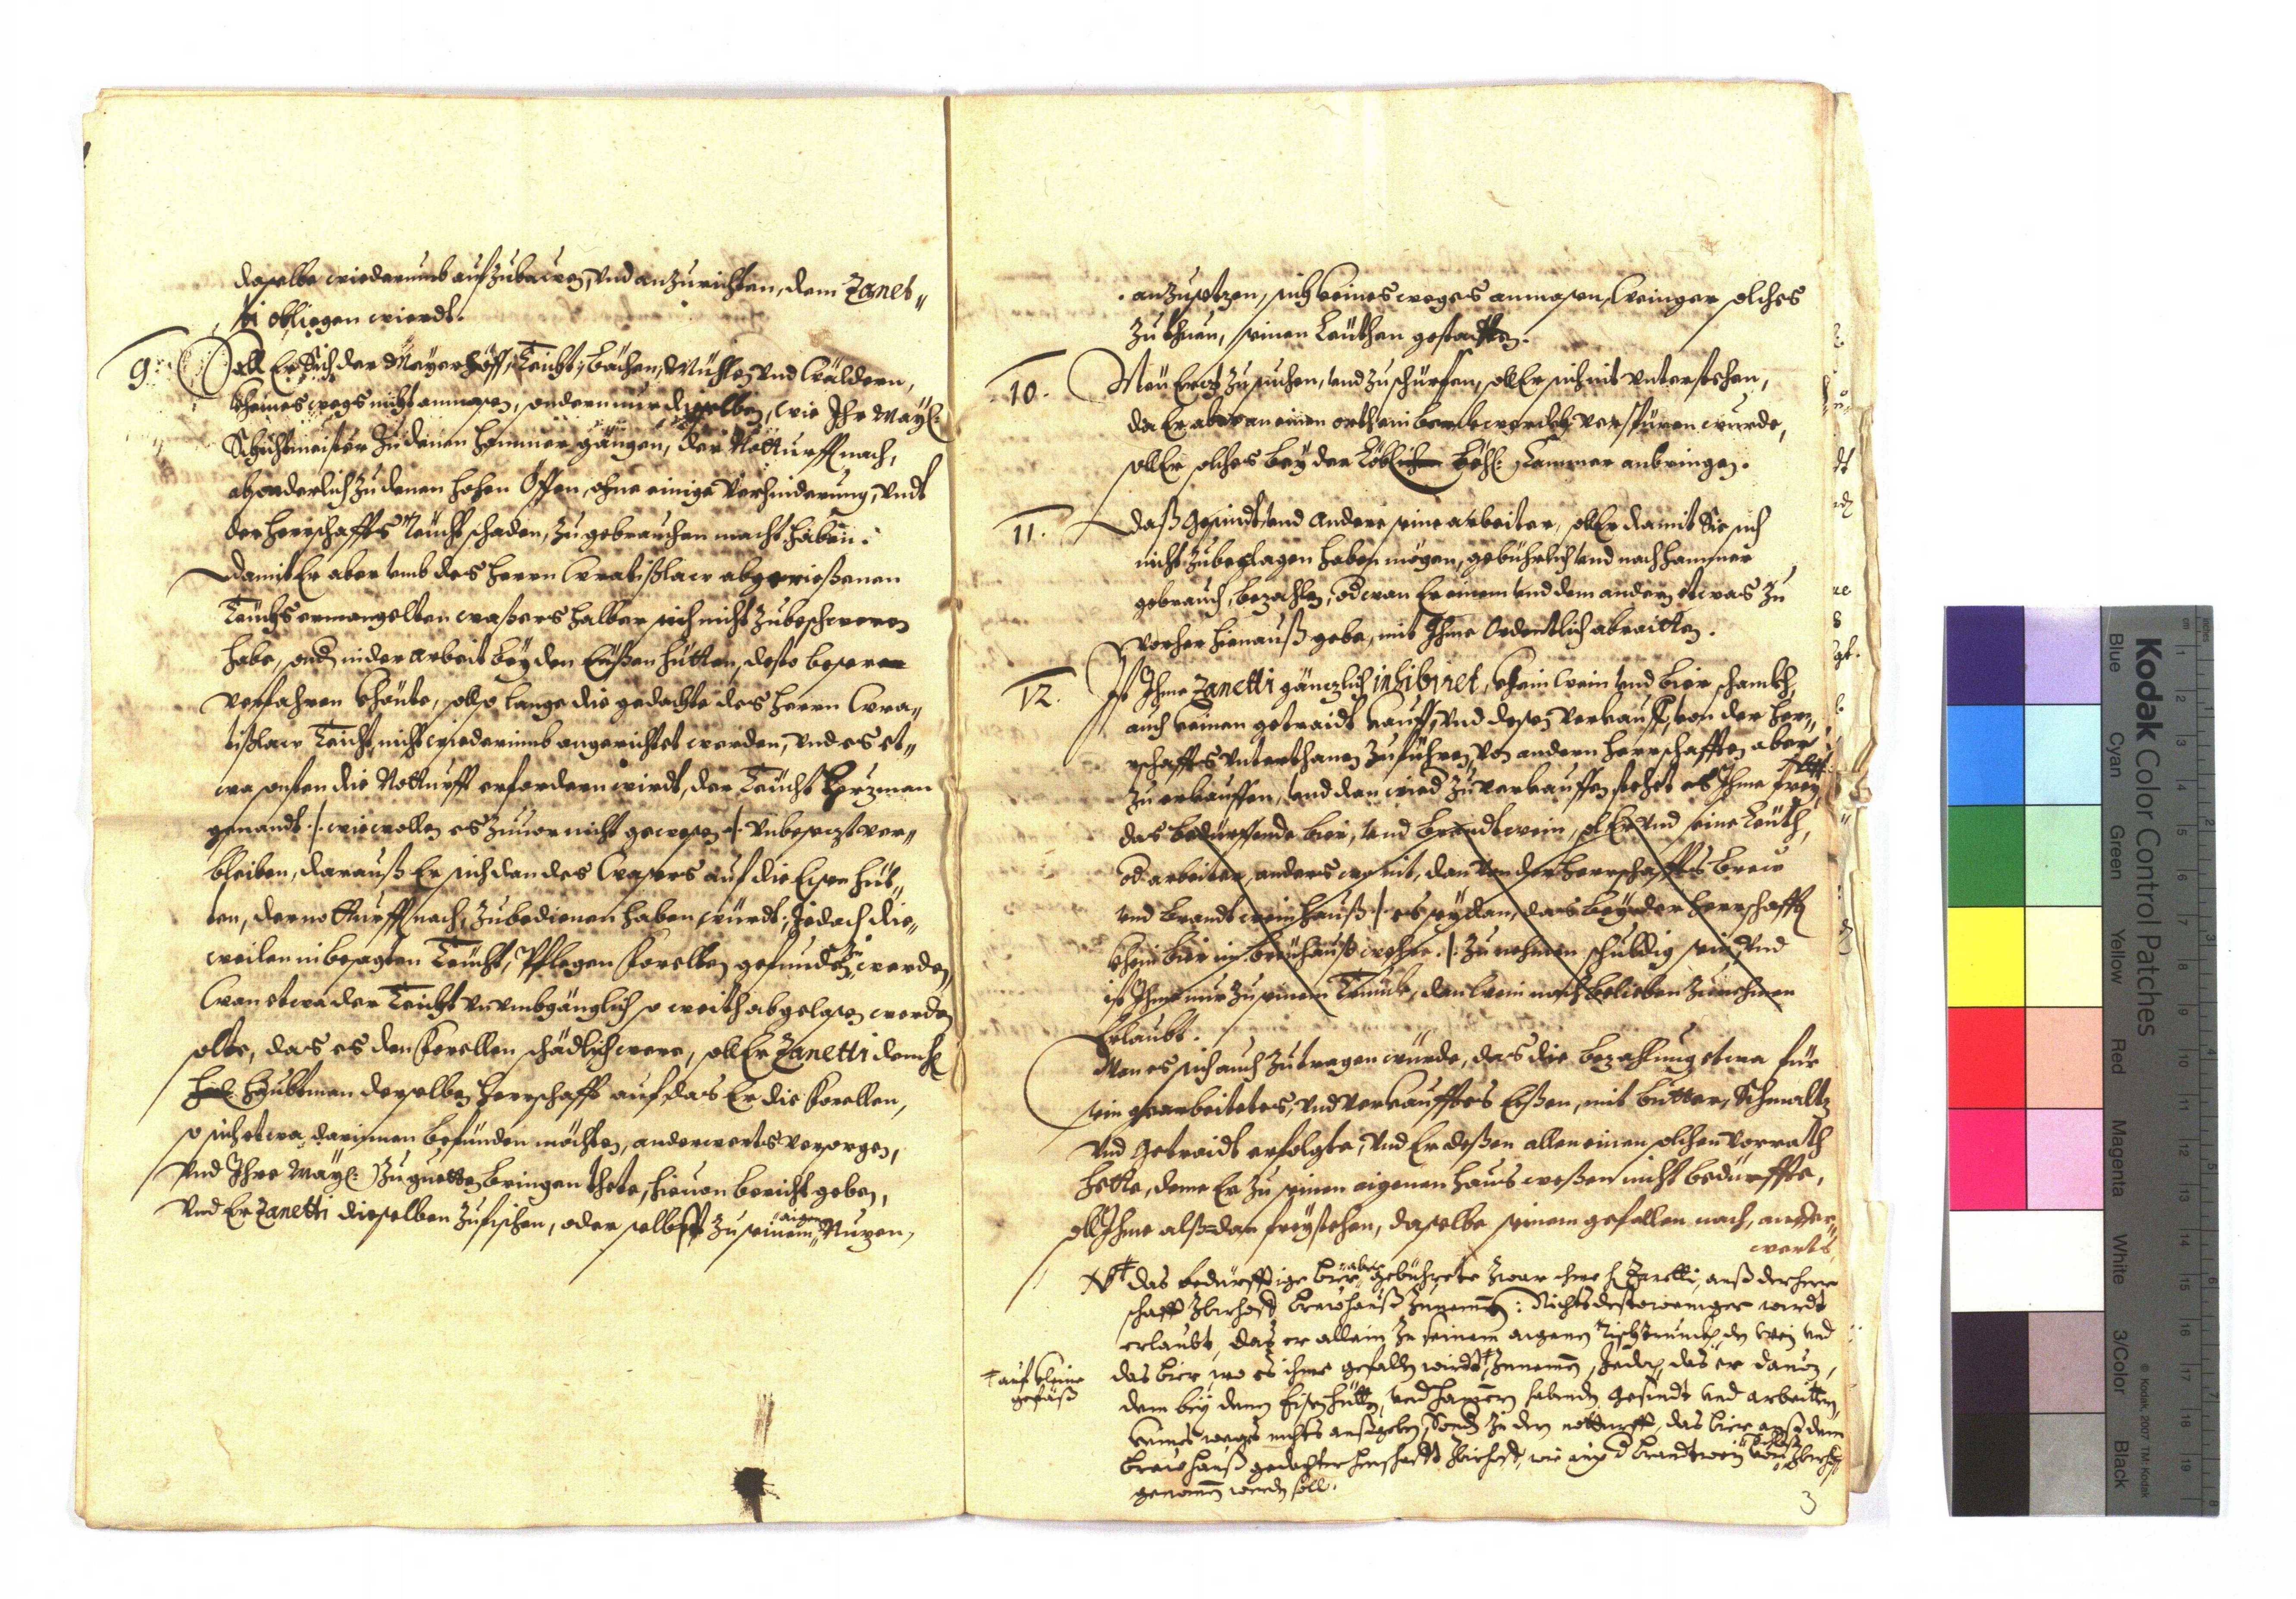 daselbe wiederumb aufzubawen, vnd anzurichten, dem Zanet„
ti obliegen wierdt.
9. Soll Er Sich der Mayerhöff, Teicht, Bächen, Mühlen vnd Wäldern,
kheines wegs nicht anmasen, sondern nur derselben, wie Ihr May:
Schichtmeister zu denen Hammer gängen, der Notturfft nach,
absonderlich zu denen hohen Öffen, ohne einige verhinderung, vndt
der Herrschaffts Teücht schaden, zu gebrauchen macht haben.
Damit Er aber vmb des Herrn Wratißlaw abgerießenen
Teichts ermangelten waßers halber sich nicht zubeschweren
habe, vnd in der Arbeit bey den Eißen hütten, desto beser
verfahren khönte, soll so lange die gedachte des Herrn Wra„
tißlaw Teicht, nicht wiederumb angerichtet werden, vnd es et„
wa onsten die Notturfft erfordern wirdt, der Teücht
genandt ./. wiewollen es zuuor nicht gewesen ./. vnbesezt ver„
bleiben, darauß Er sich dan des Wasers auf die Eisen hüt„
ten, der notturfft nach, zubedienen haben würdt; Jedoch die„
weilen in besagten Teücht, Pflegen Forellen gefunden zu werden,
Wan etwa der Teicht vnumbgänglich so weith abgelasen werden
solte, das es den Forellen schädlich were, soll Er Zanetti dem H:
Haubtman derselben Herrschafft auf das Er die Forellen,
so sich etwa darinnen befünden möchten, anderwerts versorgen,
vnd Ihre May: zu guetten bringen thete, hieuon bericht geben,
Vnd Er Zanetti dieselben zufischen, oder selbst zu seinem aignen Nuzen,
anzusetzen, sich keines weges anmasen, weinger solches
zu thuen, seinen Leüthen gestatten.
10. Neü Erez zu suchen, vnd zu schürffen, soll Er sich nit vnterstehen,
da Er aber an einem orth ein Berckwerckh verspüren wurde,
soll Er solches bey der Löblichen Böh: Cammer anbringen.
11. Daß Gesindt, vnd Andere seine arbeiter, soll Er damit Sie sich
nicht zubeklagen haben mögen, gebührlich vnd nach Hammer
gebrauch, bezahlen, od wan Er einem vnd dem andern etwas zu
vorher hienauß gebe, mit Ihme Ordentlich abraitten.
12. Ist Ihme Zanetti gänczlich inhibiret, khein Wein vnd Bier schankh,
auch keinen getraidt kauff, vnd desen verkauff, von der Herr„
schaffts vnterthanen zuführen, von andern Herrschafften aber
zu erkauffen, vnd den wied zuverkauffen stehet es Ihme frey,
das bedürffende bier, vnd brandtwein, soll Er vnd seine Leüth,
od arbeiter, anders wo nit, dan von der Herrschaffts Brew
vnd Brandtweinhauß ./. es seye dan, das bey der Herrschafft
khein bier im Breühauß wehre ./. zu nehmen schuldig sein, vnd
ist Ihme nur zu seinem Trunk, den Wein nach belieben zu nehmen
Erlaubt.
Wan es sich auch zutragen würde, das die bezahlung etwa für
sein gearbeitetes, vnd verkaufftes Eißen, mit Butter, Schmaltz
vnd Getraidt erfolgte, vnd Er deßen allen einen solchen vorrath
hette, deme Er zu seinen eigenen Haus weßen nicht bedürffte,
soll Ihme alß dan freystehen, daselbe seinem gefallen nach, ander„
werts
Nt das bedürfftige bier aber gebührete zwar ihme H. Zanetti, auß der Herr
schafft Zbirhoff Brewhauß zunemen: Nichts destoweniger wirdt
erlaubt, das er allein zu seinem aigenen Tischtrunckh, den wein vnd
das bier, wo es ihme gefallen wirdt, zunemen, Jedoch das er dauon,
† auf kleine
gefäß
dem bey denen Eisen hütten, vnd Hamern habenden Gesindt vnd arbeittern,
keines weegs nichts außgeben, sonder zu der notturfft, das bier auß dem
Brewhauß gedachter Herrschafft Zbirhoff, wie auch d Brandtwein
genommen werden soll.
3
Kodak Color Control Patches
Blue Cyan Green Yellow Red Magenta White 3/Color Black
© Kodak, 2007 TM: Kodak